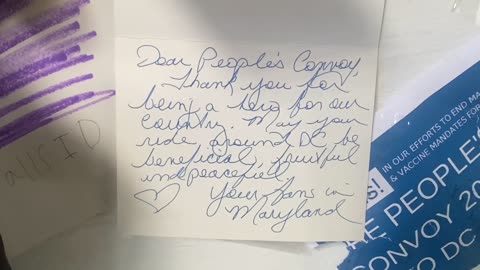 Dear People's Convoy,
Thank you for
being a hero for our
country. May your
ride around DC be
beneficial, fruitful
and peaceful.
Your fans in
Maryland
IN OUR EFFORTS TO END MA
& VACCINE MANDATES FOR
PEOPLE'
CONVOY 20
O DC